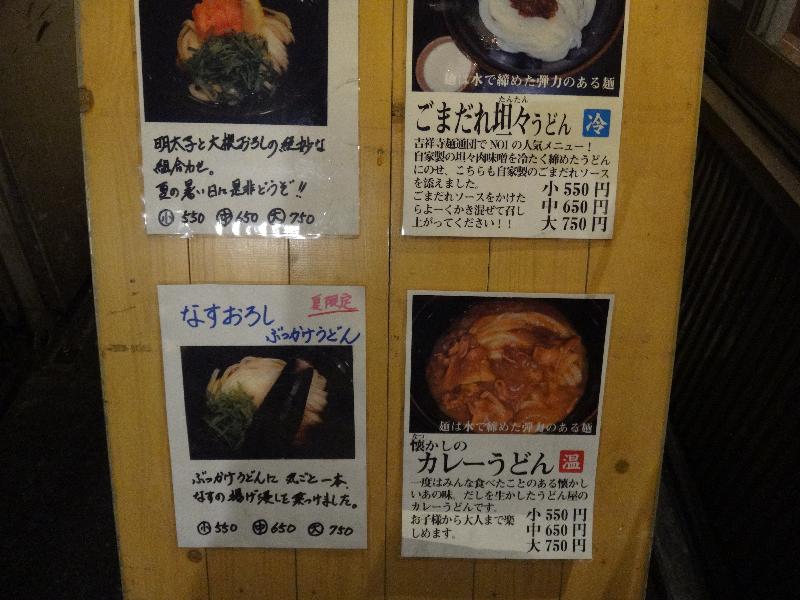 明太子と大根おろしの絶妙な
組合わせ。
夏の暑い日に是非どうぞ!!
小 550 中 650 大 750
麺は水で締めた弾力のある麺
たんたん
ごまだれ坦々うどん 冷
吉祥寺麺通団でNO1の人気メニュー!
自家製の坦々肉味噌を冷たく締めたうどん
にのせ、こちらも自家製のごまだれソース
を添えました。
ごまだれソースをかけた
らよーくかき混ぜて召し
上がってください!!
小 550 円
中 650 円
大 750 円
夏限定
なすおろし
ぶっかけうどん
ぶっかけうどんに 丸ごと一本、
なすの揚げ浸しを添つけました。
小 550 中 650 大 750
麺は水で締めた弾力のある麺
なつ
懐かしの
カレーうどん 温
一度はみんな食べたことのある懐かし
いあの味。だしを生かしたうどん屋の
カレーうどんです。
お子様から大人まで楽
しめます。
小 550 円
中 650 円
大 750 円